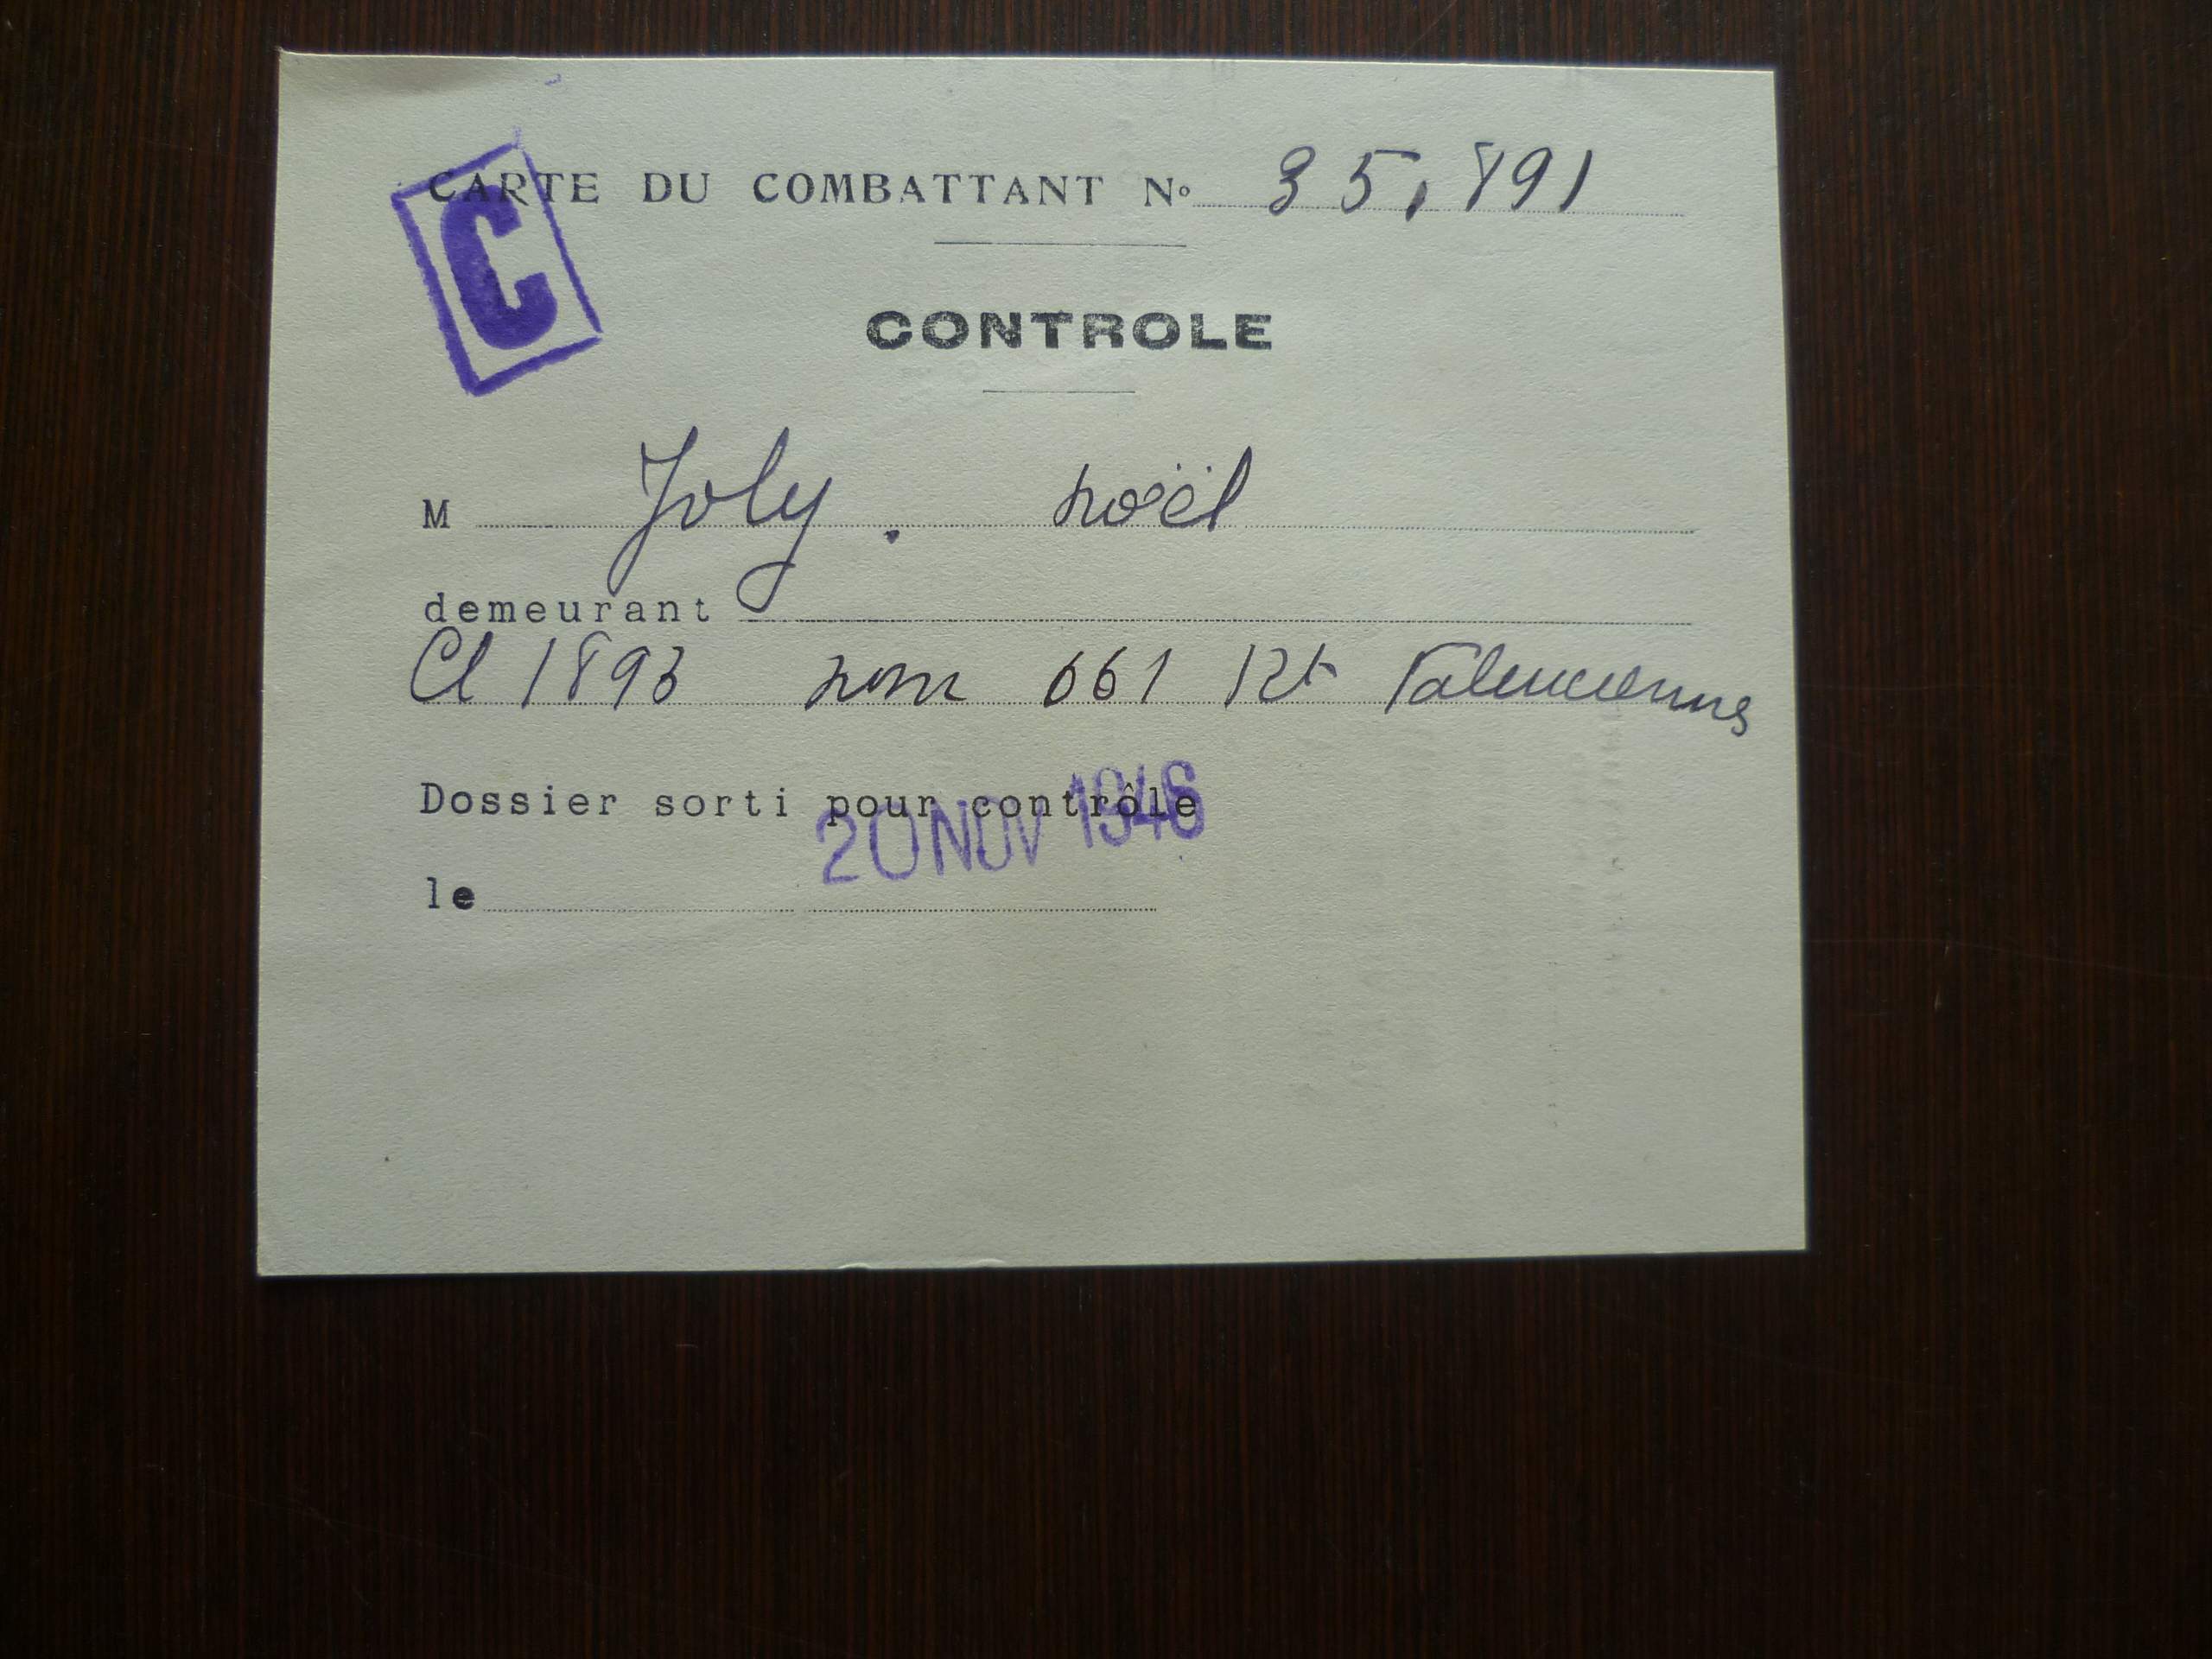 CARTE DU COMBATTANT Nº 35.891
C
CONTROLE
M Joly. noël
demeurant
Cl 1893 661 Rt Valenciennes
Dossier sorti pour contrôle
20 NOV 1946
le